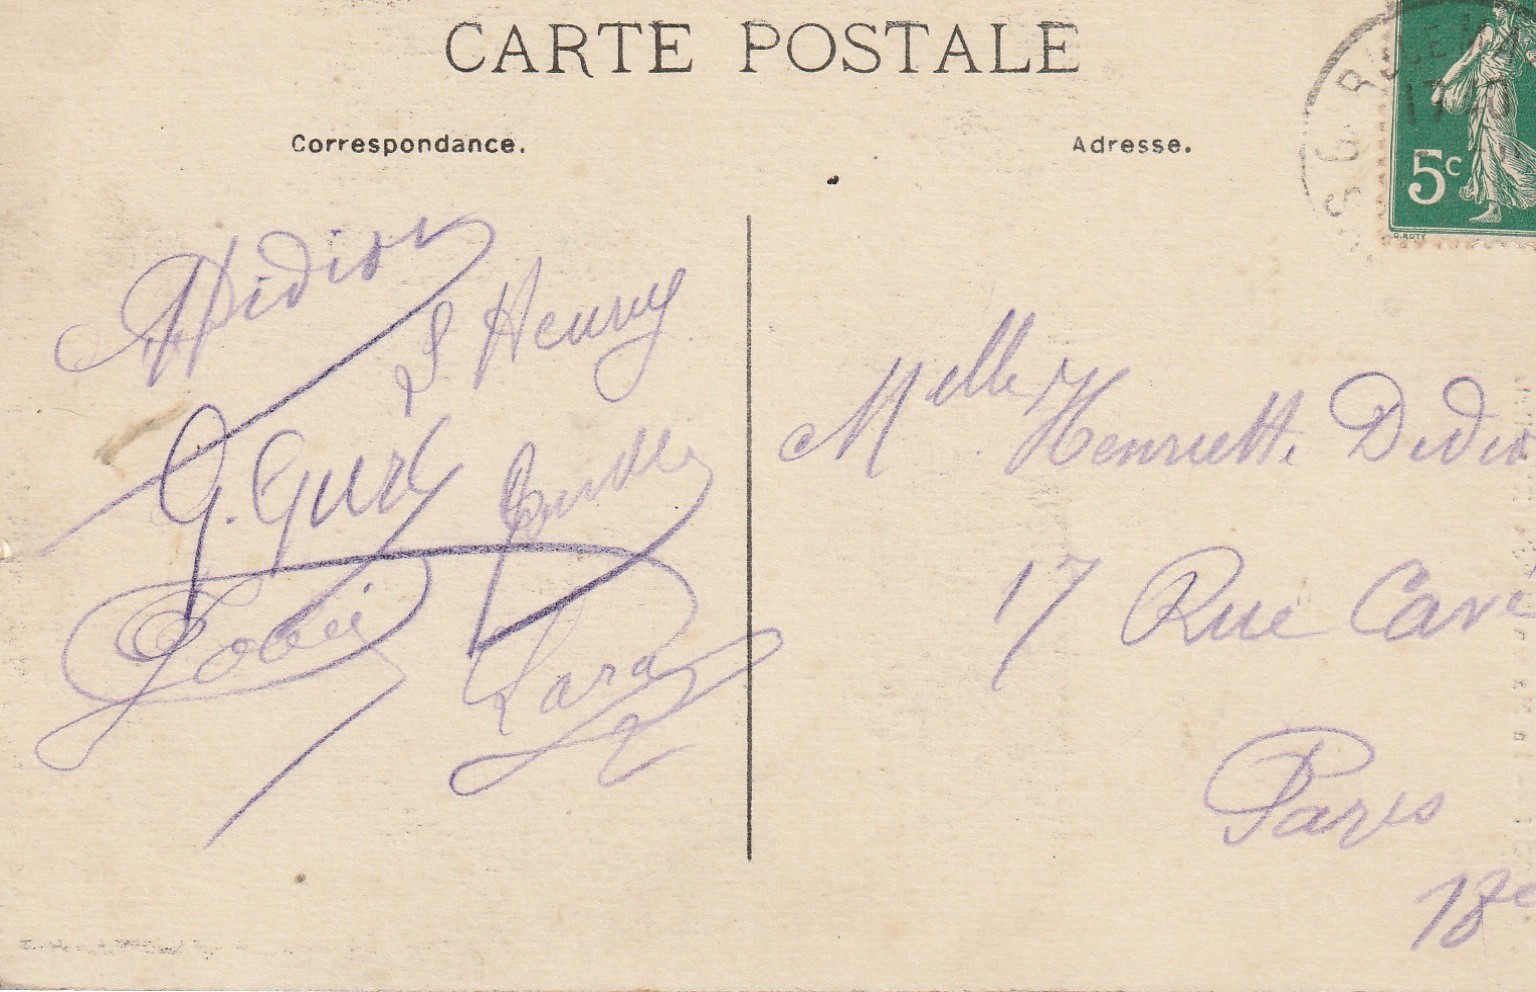 CARTE POSTALE
Correspondance.
Adresse.
5c
Didion
S Henry
G. Guery
Lara
Melle Henriette Didio
17 Rue Cavé
Paris
18e